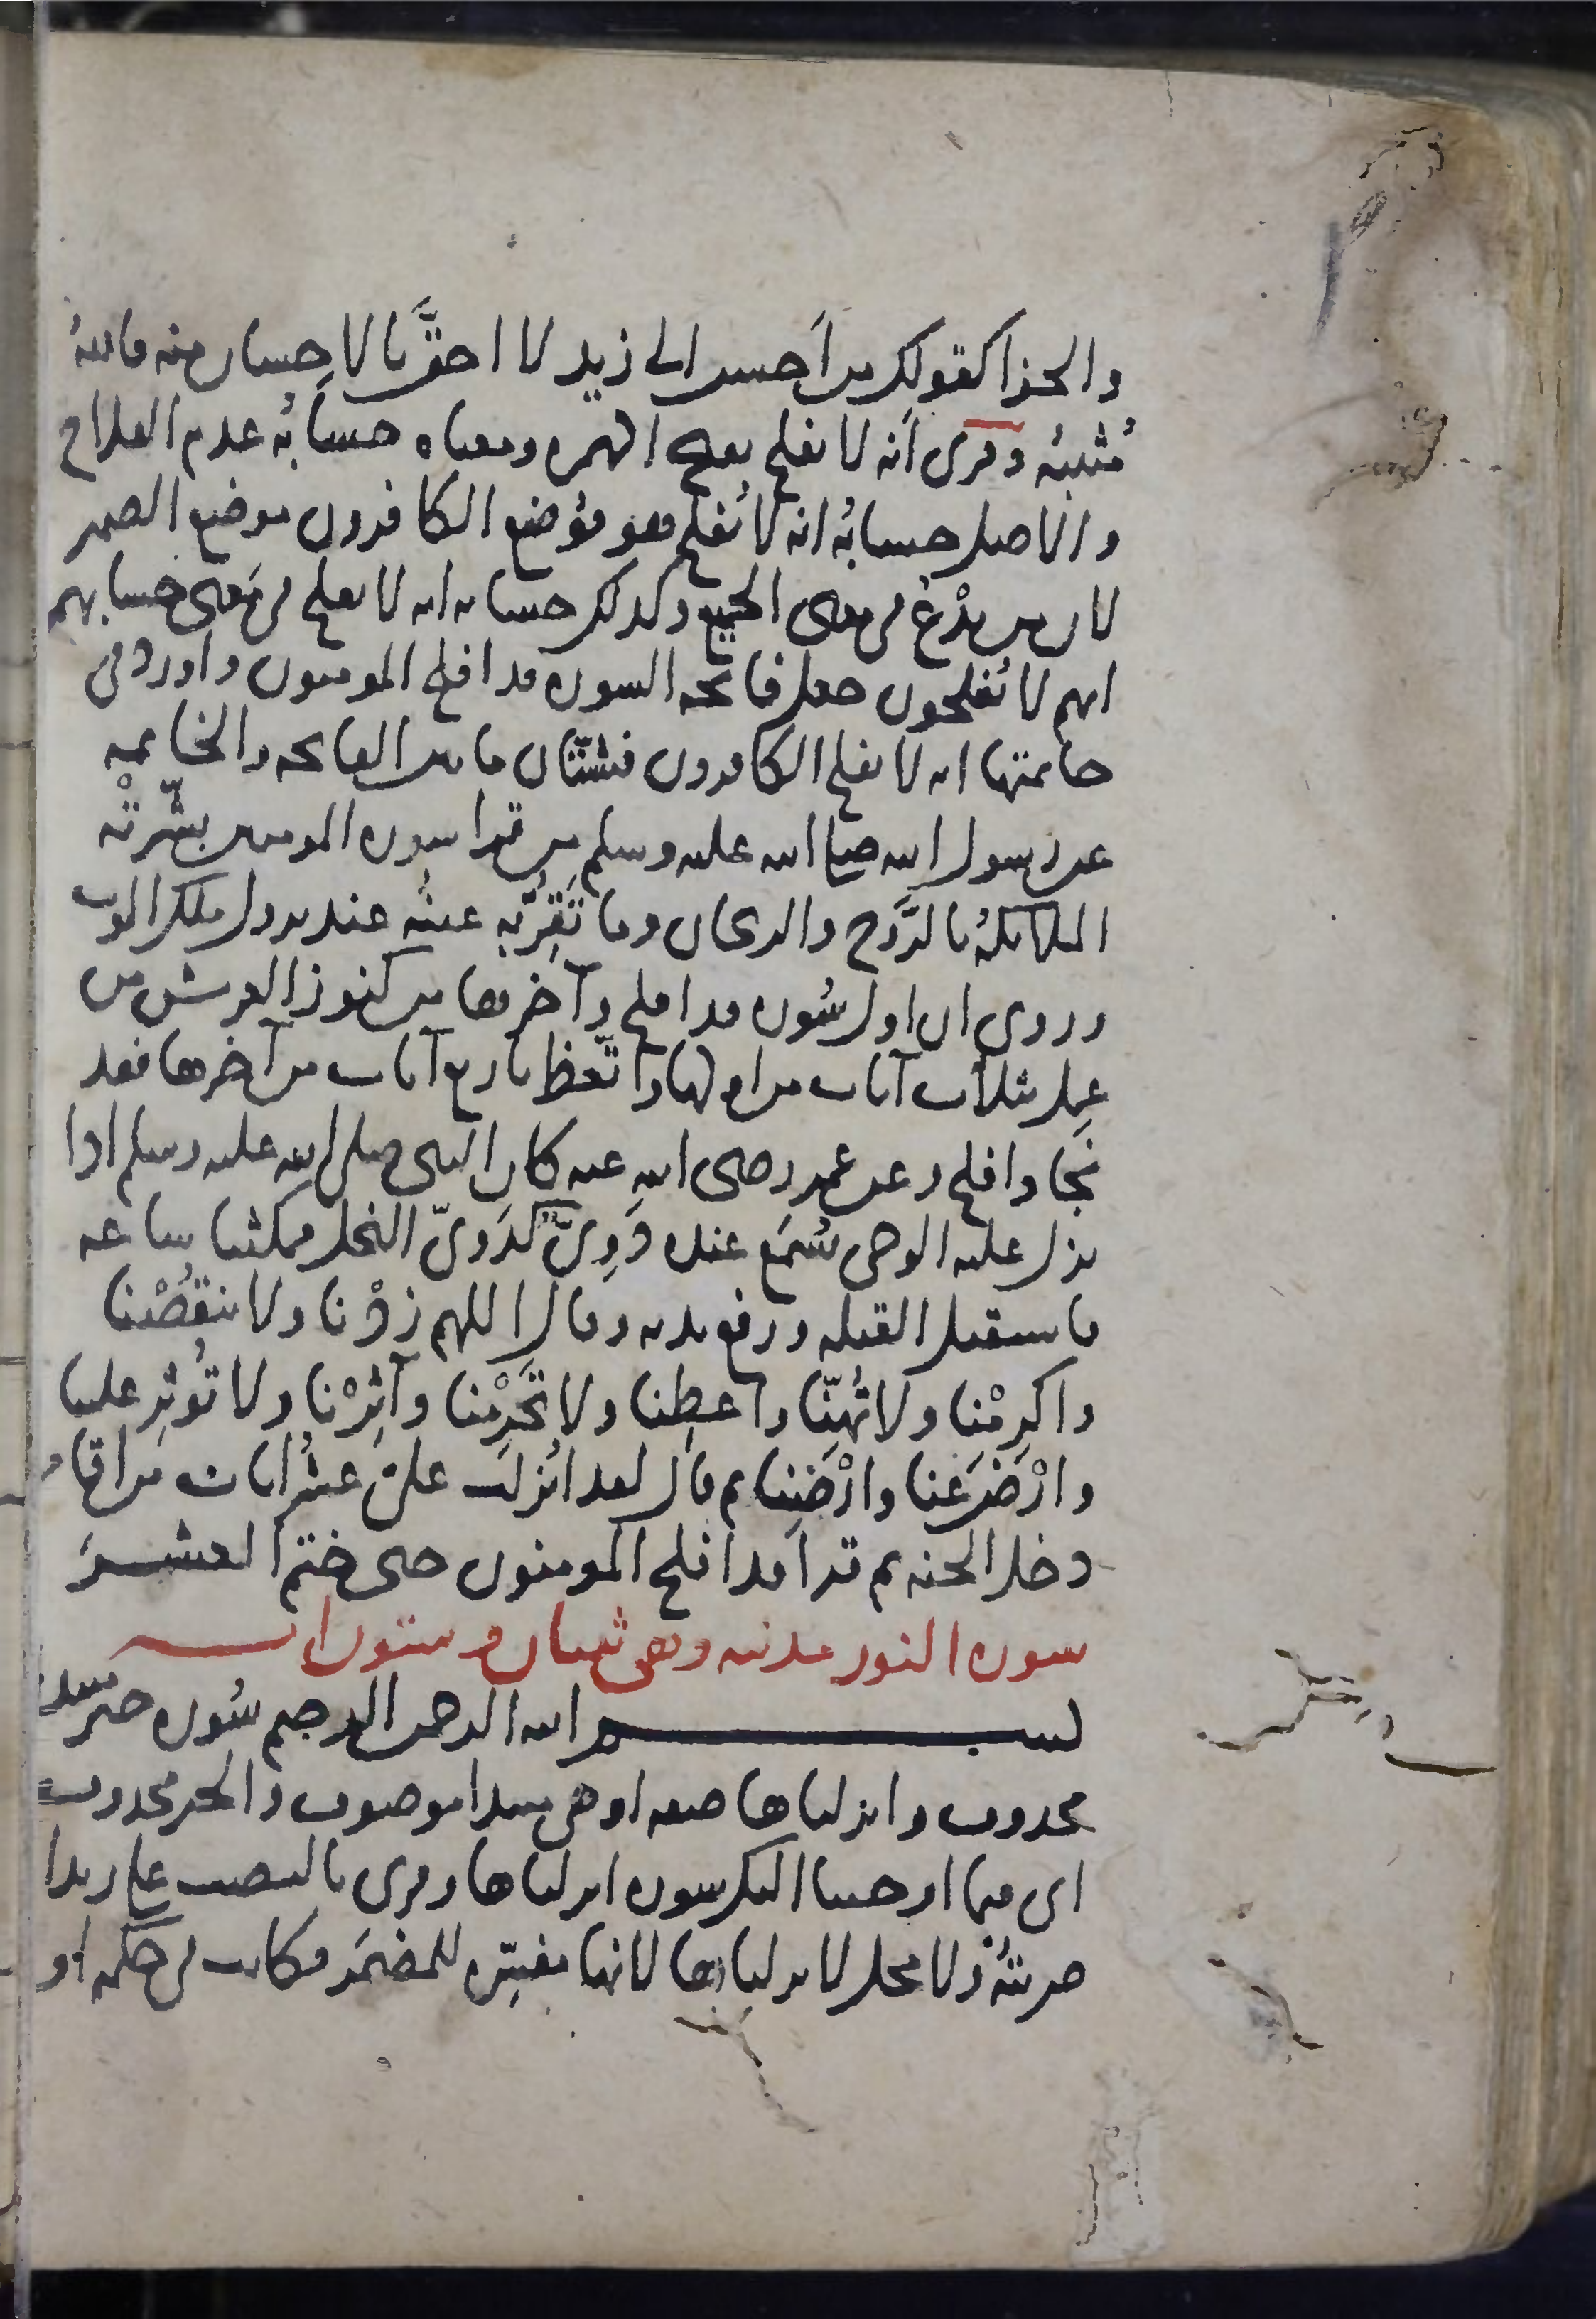 والجزا كقولك من أحسن الى زيد لا احقَّ بالاحسان منه فاللهُ
مُثيبُه وقرى أنه لا يفلح بفتح الهمزه ومعناه حسابُه عدم الفلاح
والاصل حسابُه انه لا يُفلح هو فوُضع الكافرون موضع الضمير
لان من يدْعُ في معنى الجميع وكذلك حسابه انه لا يفلح في مَعنى حسابهم
انهم لا يُفلحون جعل فاتحه السوره قد افلح المومنون واورد في
خاتمتها انه لا يفلح الكافرون فشتّان ما بين الفاتحه والخاتمه
عن رسول الله صلى الله عليه وسلم من قرا سوره المومنين بشّرتْه
الملائكهُ بالرَّوح والريحان وما تَقِرُّ به عينُه عند نزول ملك الموت
وروى ان اول سُوره قد افلح وآخرها من كنوز العرش من
عمِل بثلاث آيات من اولها واتّعظ باربع آيات من آخرها فقد
نجا وافلح وعن عمر رضى الله عنه كان النبى صلى الله عليه وسلم اذا
نزل عليه الوحى يُسمَع عنده دَوِىٌّ كدَوىّ النحل فمكثنا ساعه
فاستقبل القبله ورفع يديه وقال اللهم زدْنا ولا تنقُصْنا
واكرِمْنا ولا تُهِنّا واعطِنا ولا تَحرِمْنا وآثِرْنا ولا تُوثِر علينا
وارْضَ عَنا وارْضِنا ثم قال لقد اُنزلت علىّ عشرُ ايات من اقامهن
دخل الجنه ثم قرا قد افلح المومنون حتى ختم العشرَ
سوره النور مدنيه وهى ثنتان وستون ايه
بسم الله الرحمن الرحيم سُوره خبر مبتدا
محذوف وانزلناها صفه او هى مبتدا موصوف والخبر محذوف
اى فيما اوحينا اليك سوره انزلناها وقرى بالنصب على زيدا
ضربتُه ولا محل لانزلناها لانها مفسّره للمضمَر فكانت فى حكمه او